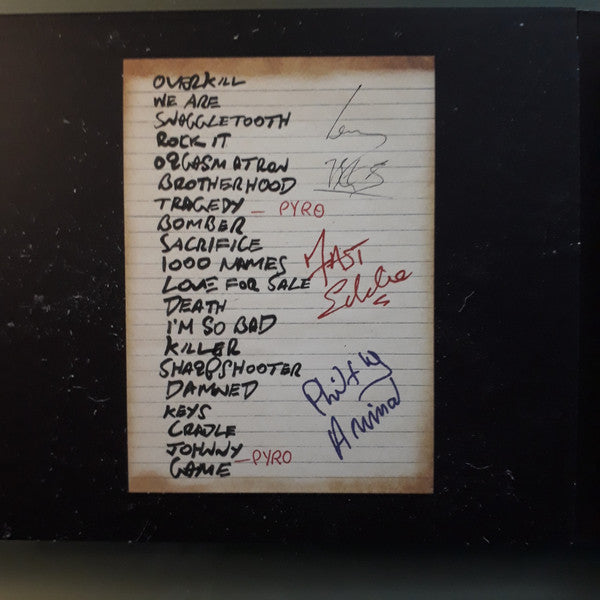 OVERKILL
WE ARE
SNAGGLETOOTH
ROCK IT
ORGASMATRON
BROTHERHOOD
TRAGEDY — PYRO
BOMBER
SACRIFICE
1000 NAMES
LOVE FOR SALE
DEATH
I'M SO BAD
KILLER
SHARPSHOOTER
DAMNED
KEYS
CRADLE
JOHNNY
GAME — PYRO
Lemmy
FAST
Eddie
Philthy
Animal